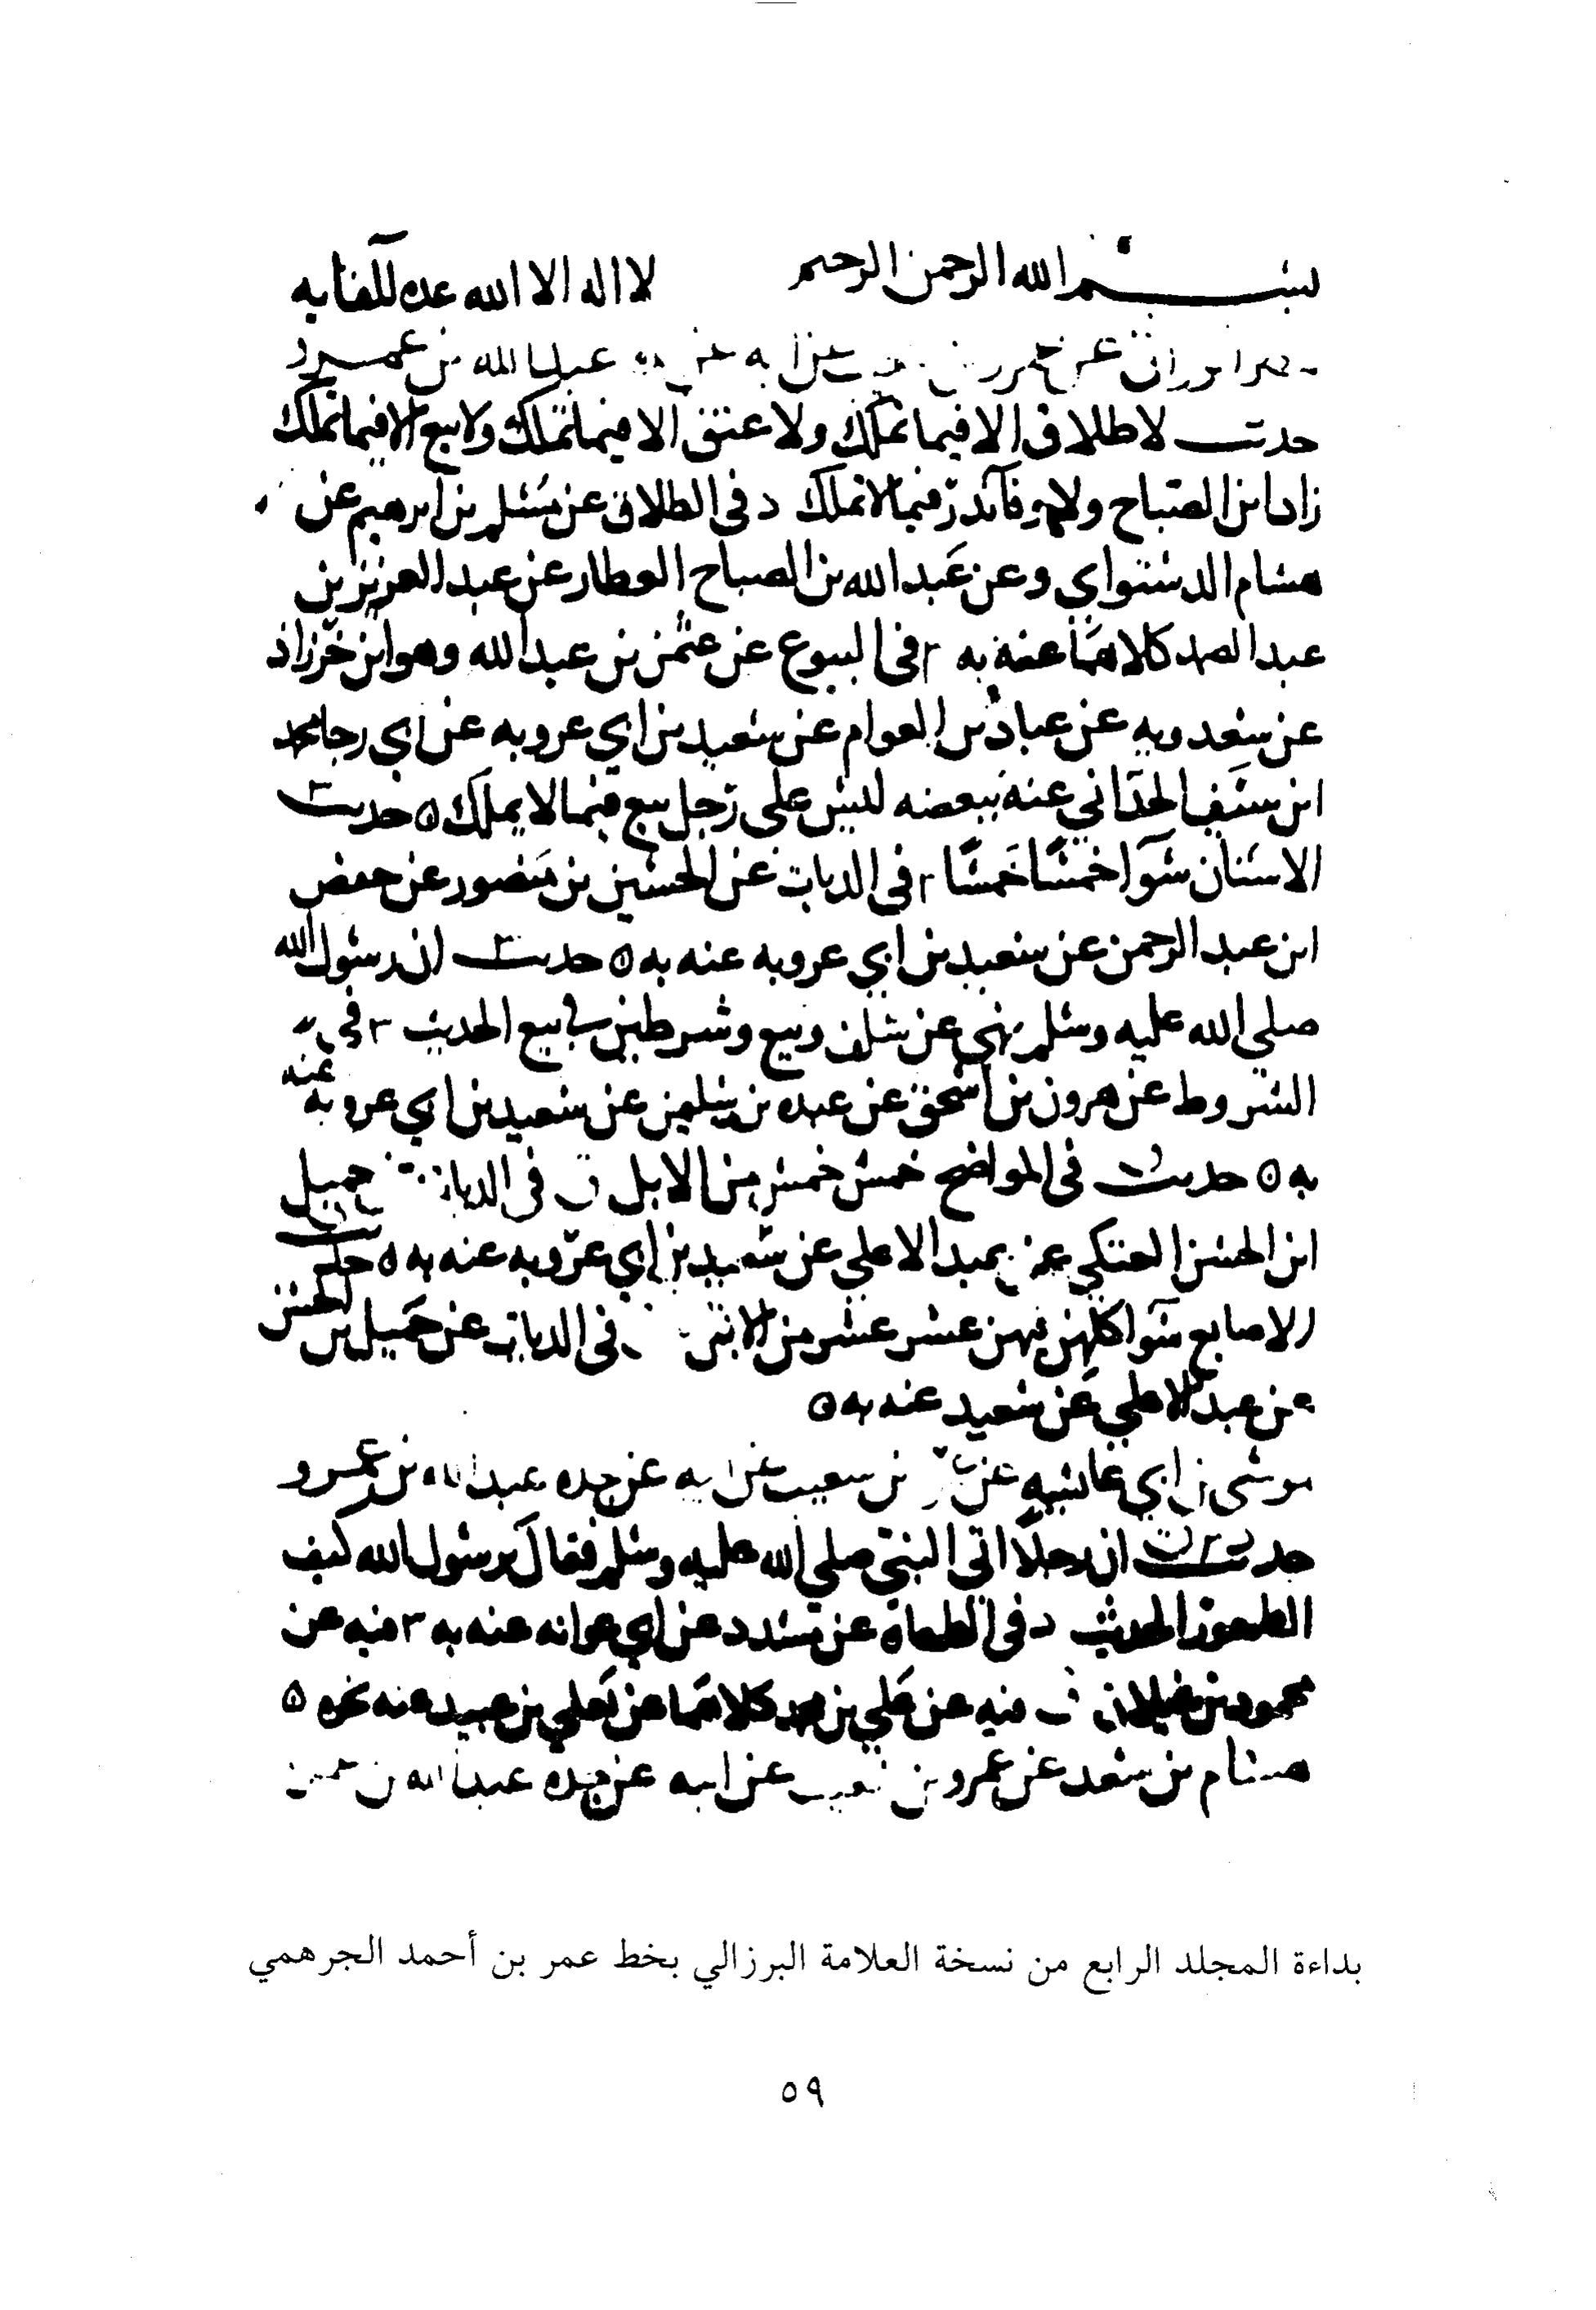 بسم الله الرحمن الرحيم لا اله الا الله عده للقايه
مطر الوراق عن عمرو بن عن ابيه عن عبد الله بن عمرو
حديث لا طلاق الا فيما تملك ولا عتق الا فيما تملك ولا بيع الا فيما تملك
زاد ابن الصباح ولا وفا نذر فيما لا تملك د في الطلاق عن مسلم بن ابرهيم عن
هشام الدستواي وعن عبد الله بن الصباح العطار عن عبد العزيز بن
عبد الصمد كلاهما عنه به س في البيوع عن عثمن بن عبد الله وهو ابن خرزاذ
عن سعدويه عن عباد بن العوام عن سعيد بن ابي عروبه عن ابي رجا محمد
ابن سيف الحداني عنه ببعضه ليس على رجل بيع فيما لا يملك ٥ حديث س
الاسنان سوا خمسا خمسا س في الديات عن الحسين بن منصور عن حفص
ابن عبد الرحمن عن سعيد بن ابي عروبه عنه به ٥ حديث س ان رسول الله
صلي الله عليه وسلم نهي عن سلف وبيع وشرطين في بيع الحديث س في
الشروط عن هرون بن اسحق عن عبده بن سليمن عن سعيد بن ابي عروبه عنه
به ٥ حديث ق في المواضح خمس خمس من الابل ق في الديات جميل
ابن الحسن العتكي عن عبد الاعلي عن سعيد بن ابي عروبه عنه به ٥ حديث
الاصابع سوا كلهن فيهن عشر عشر من الابل في الديات عن جميل بن الحسن
عن عبد الاعلي عن سعيد عنه به ٥
موسى بن ابي عايشه عن بن شعيب عن ابيه عن جده عبد الله بن عمرو
حديث د س ق ان رجلا اتى النبي صلي الله عليه وسلم فقال يرسول الله كيف
الطهور الحديث د في الطهاره عن مسدد عن ابي عوانه عنه به س فيه عن
محمود بن غيلان ق فيه عن علي بن محمد كلاهما عن يعلي بن عبيد عنه نحوه ٥
هشام بن سعد عن عمرو بن شعيب عن ابيه عن جده عبد الله بن
بداءة المجلد الرابع من نسخة العلامة البرزالي بخط عمر بن أحمد الجرهمي
٥٩